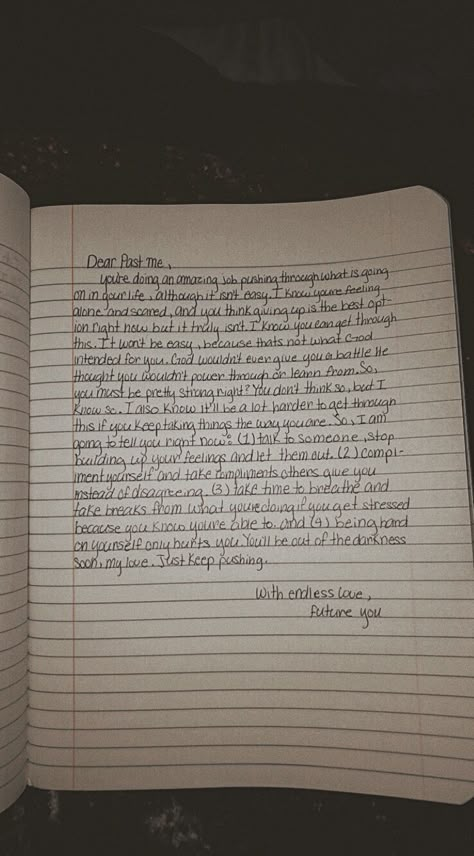 Dear Past me,
you're doing an amazing job pushing through what is going
on in your life, although it isn't easy. I know youre feeling
alone and scared, and you think giving up is the best opt-
ion right now but it truly isn't. I know you can get through
this. It wont be easy, because thats not what God
intended for you. God wouldn't ever give you a battle He
thought you wouldn't power through or learn from. So,
you must be pretty strong right? You don't think so, but I
know so. I also know it'll be a lot harder to get through
this if you keep taking things the way you are. So, I am
going to tell you right now: (1) talk to someone, stop
building up your feelings and let them out. (2) compli-
ment yourself and take compliments others give you
instead of disagreeing. (3) take time to breathe and
take breaks from what youre doing if you get stressed
because you know you're able to. and (4) being hard
on yourself only hurts you. You'll be out of the darkness
soon, my love. Just keep pushing.
With endless love,
future you